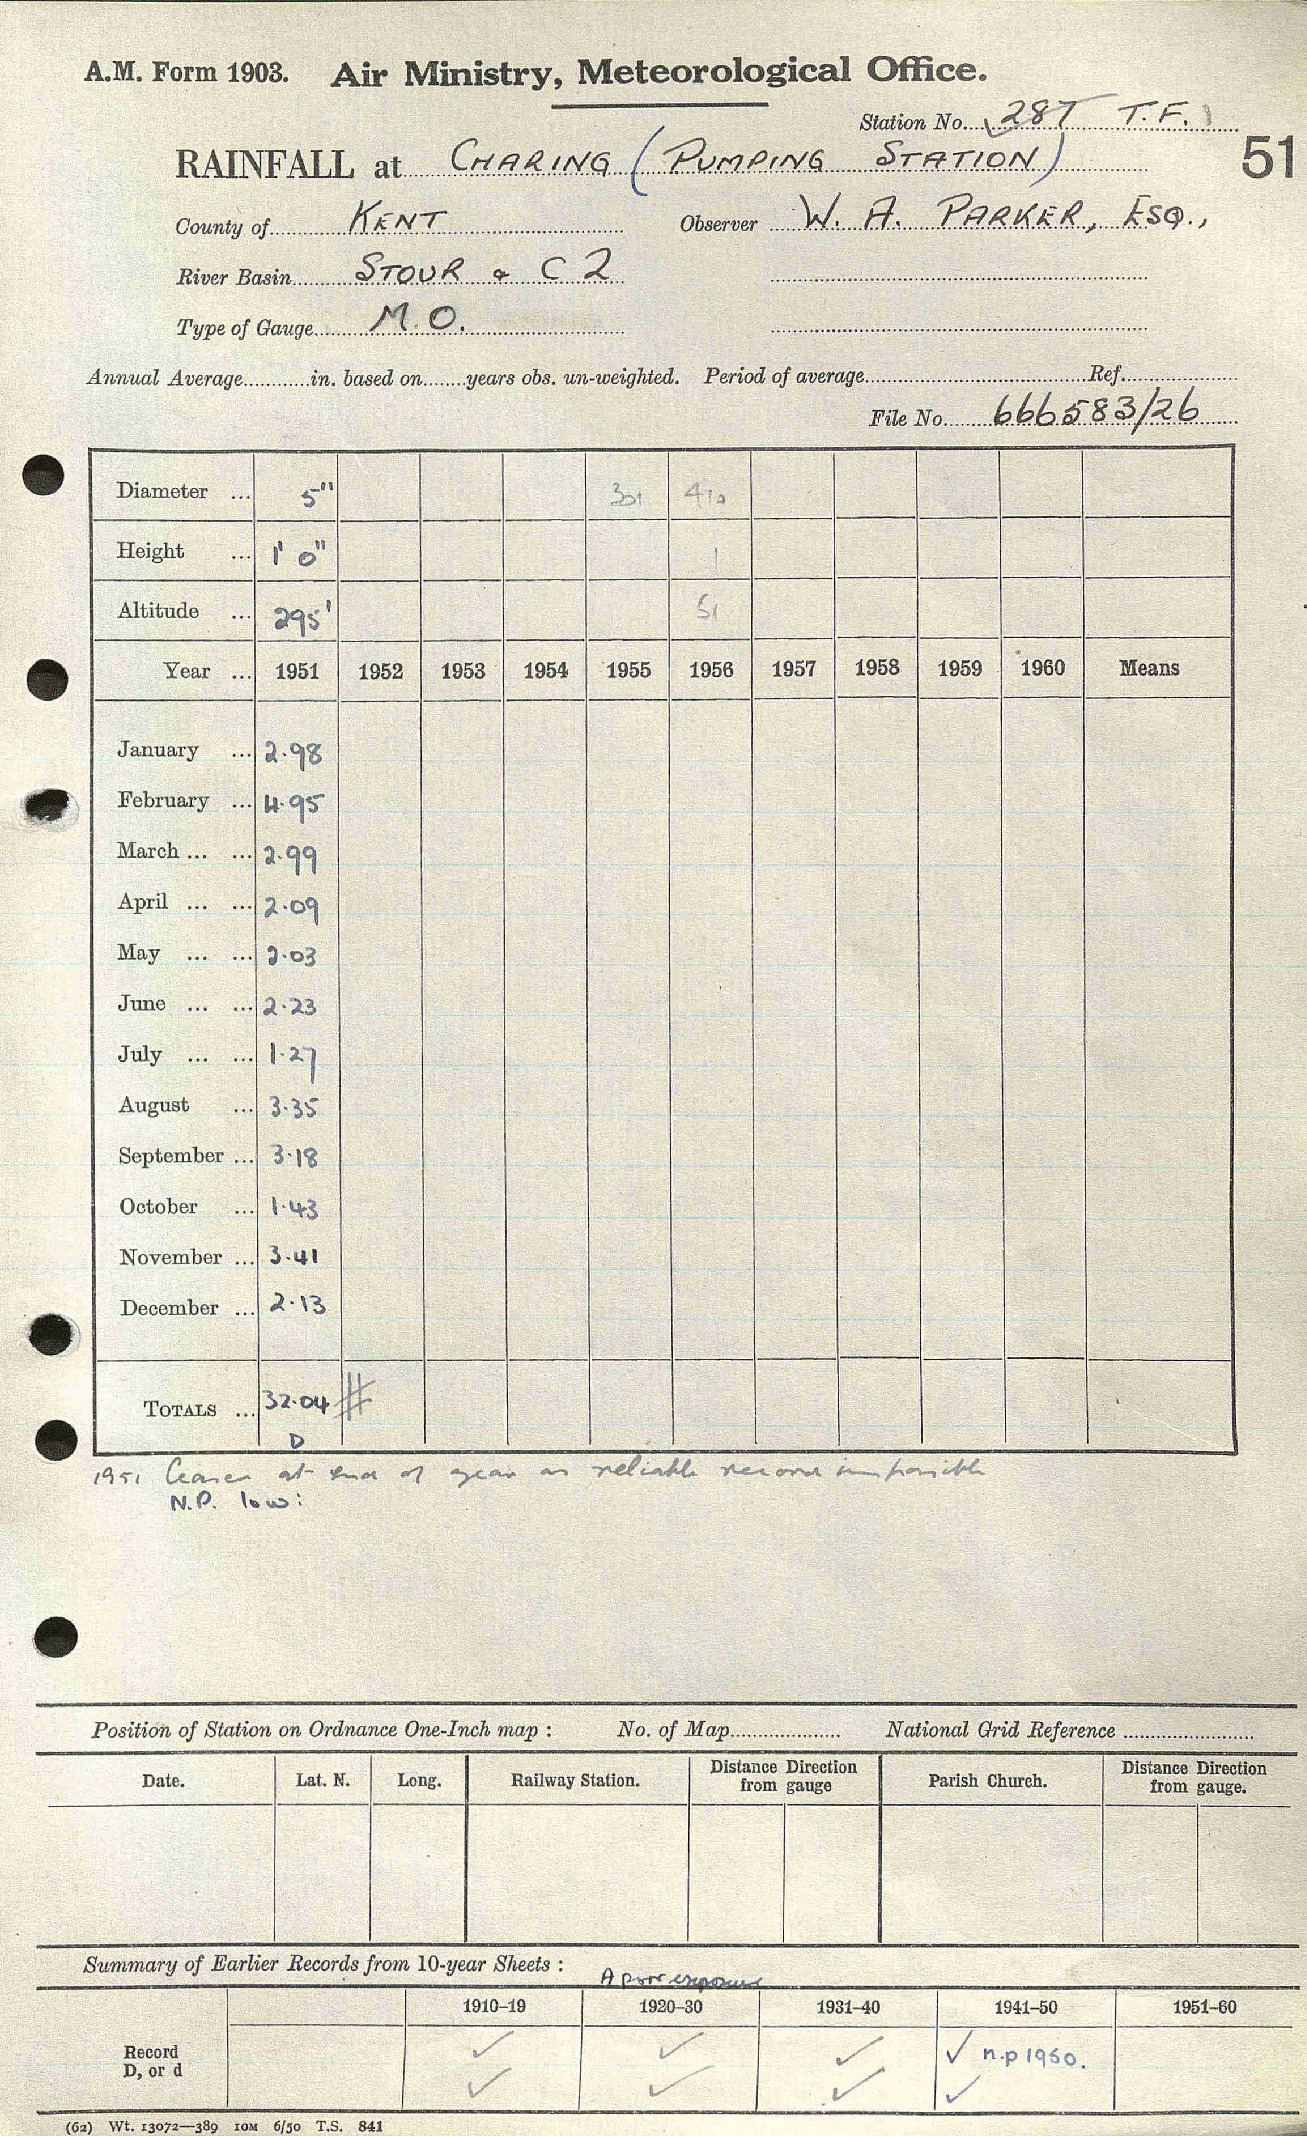 A.M. Form 1903. Air Ministry, Meteorological Office.
Station No. 287 T.F.
RAINFALL at CHARING (PUMPING STATION) 51
County of KENT Observer W. A. PARKER, ESQ.,
River Basin STOUR & C 2
Type of Gauge M.O.
Annual Average in. based on years obs. un-weighted. Period of average Ref.
File No. 666583/26
Diameter ... 5" 301 410
Height ... 1' 0" 1
Altitude ... 295' 51
Year ... 1951 1952 1953 1954 1955 1956 1957 1958 1959 1960 Means
January ... 2.98
February ... 4.95
March ... ... 2.99
April ... ... 2.09
May ... ... 2.03
June ... ... 2.23
July ... ... 1.27
August ... 3.35
September ... 3.18
October ... 1.43
November ... 3.41
December ... 2.13
TOTALS ... 32.04 #
D
1951 Ceases at end of year as reliable record impossible
N.P. low:
Position of Station on Ordnance One-Inch map : No. of Map National Grid Reference
Date. Lat. N. Long. Railway Station. Distance Direction from gauge Parish Church. Distance Direction from gauge.
Summary of Earlier Records from 10-year Sheets :
A poor exposure
1910–19 1920–30 1931–40 1941–50 1951–60
Record ✓ ✓ ✓ ✓ n.p 1950.
D, or d ✓ ✓ ✓ ✓
(62) Wt. 13072—389 10M 6/50 T.S. 841